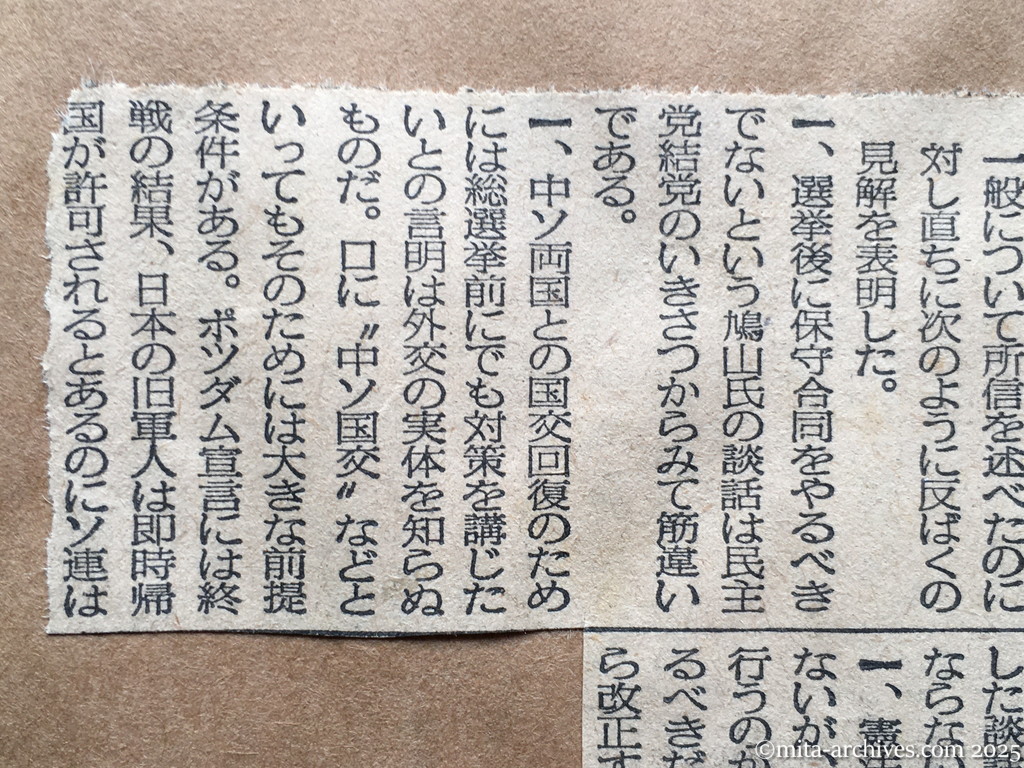 一般について所信を述べたのに
対し直ちに次のように反ばくの
見解を表明した。
一、選挙後に保守合同をやるべき
でないという鳩山氏の談話は民主
党結党のいきさつからみて筋違い
である。
一、中ソ両国との国交回復のため
には総選挙前にでも対策を講じた
いとの言明は外交の実体を知らぬ
ものだ。口に〝中ソ国交〟などと
いってもそのためには大きな前提
条件がある。ポツダム宣言には終
戦の結果、日本の旧軍人は即時帰
国が許可されるとあるのにソ連は
した談
ならない
一、憲
ないが、
行うの
るべきだ
ら改正す
©mita-archives.com 2025